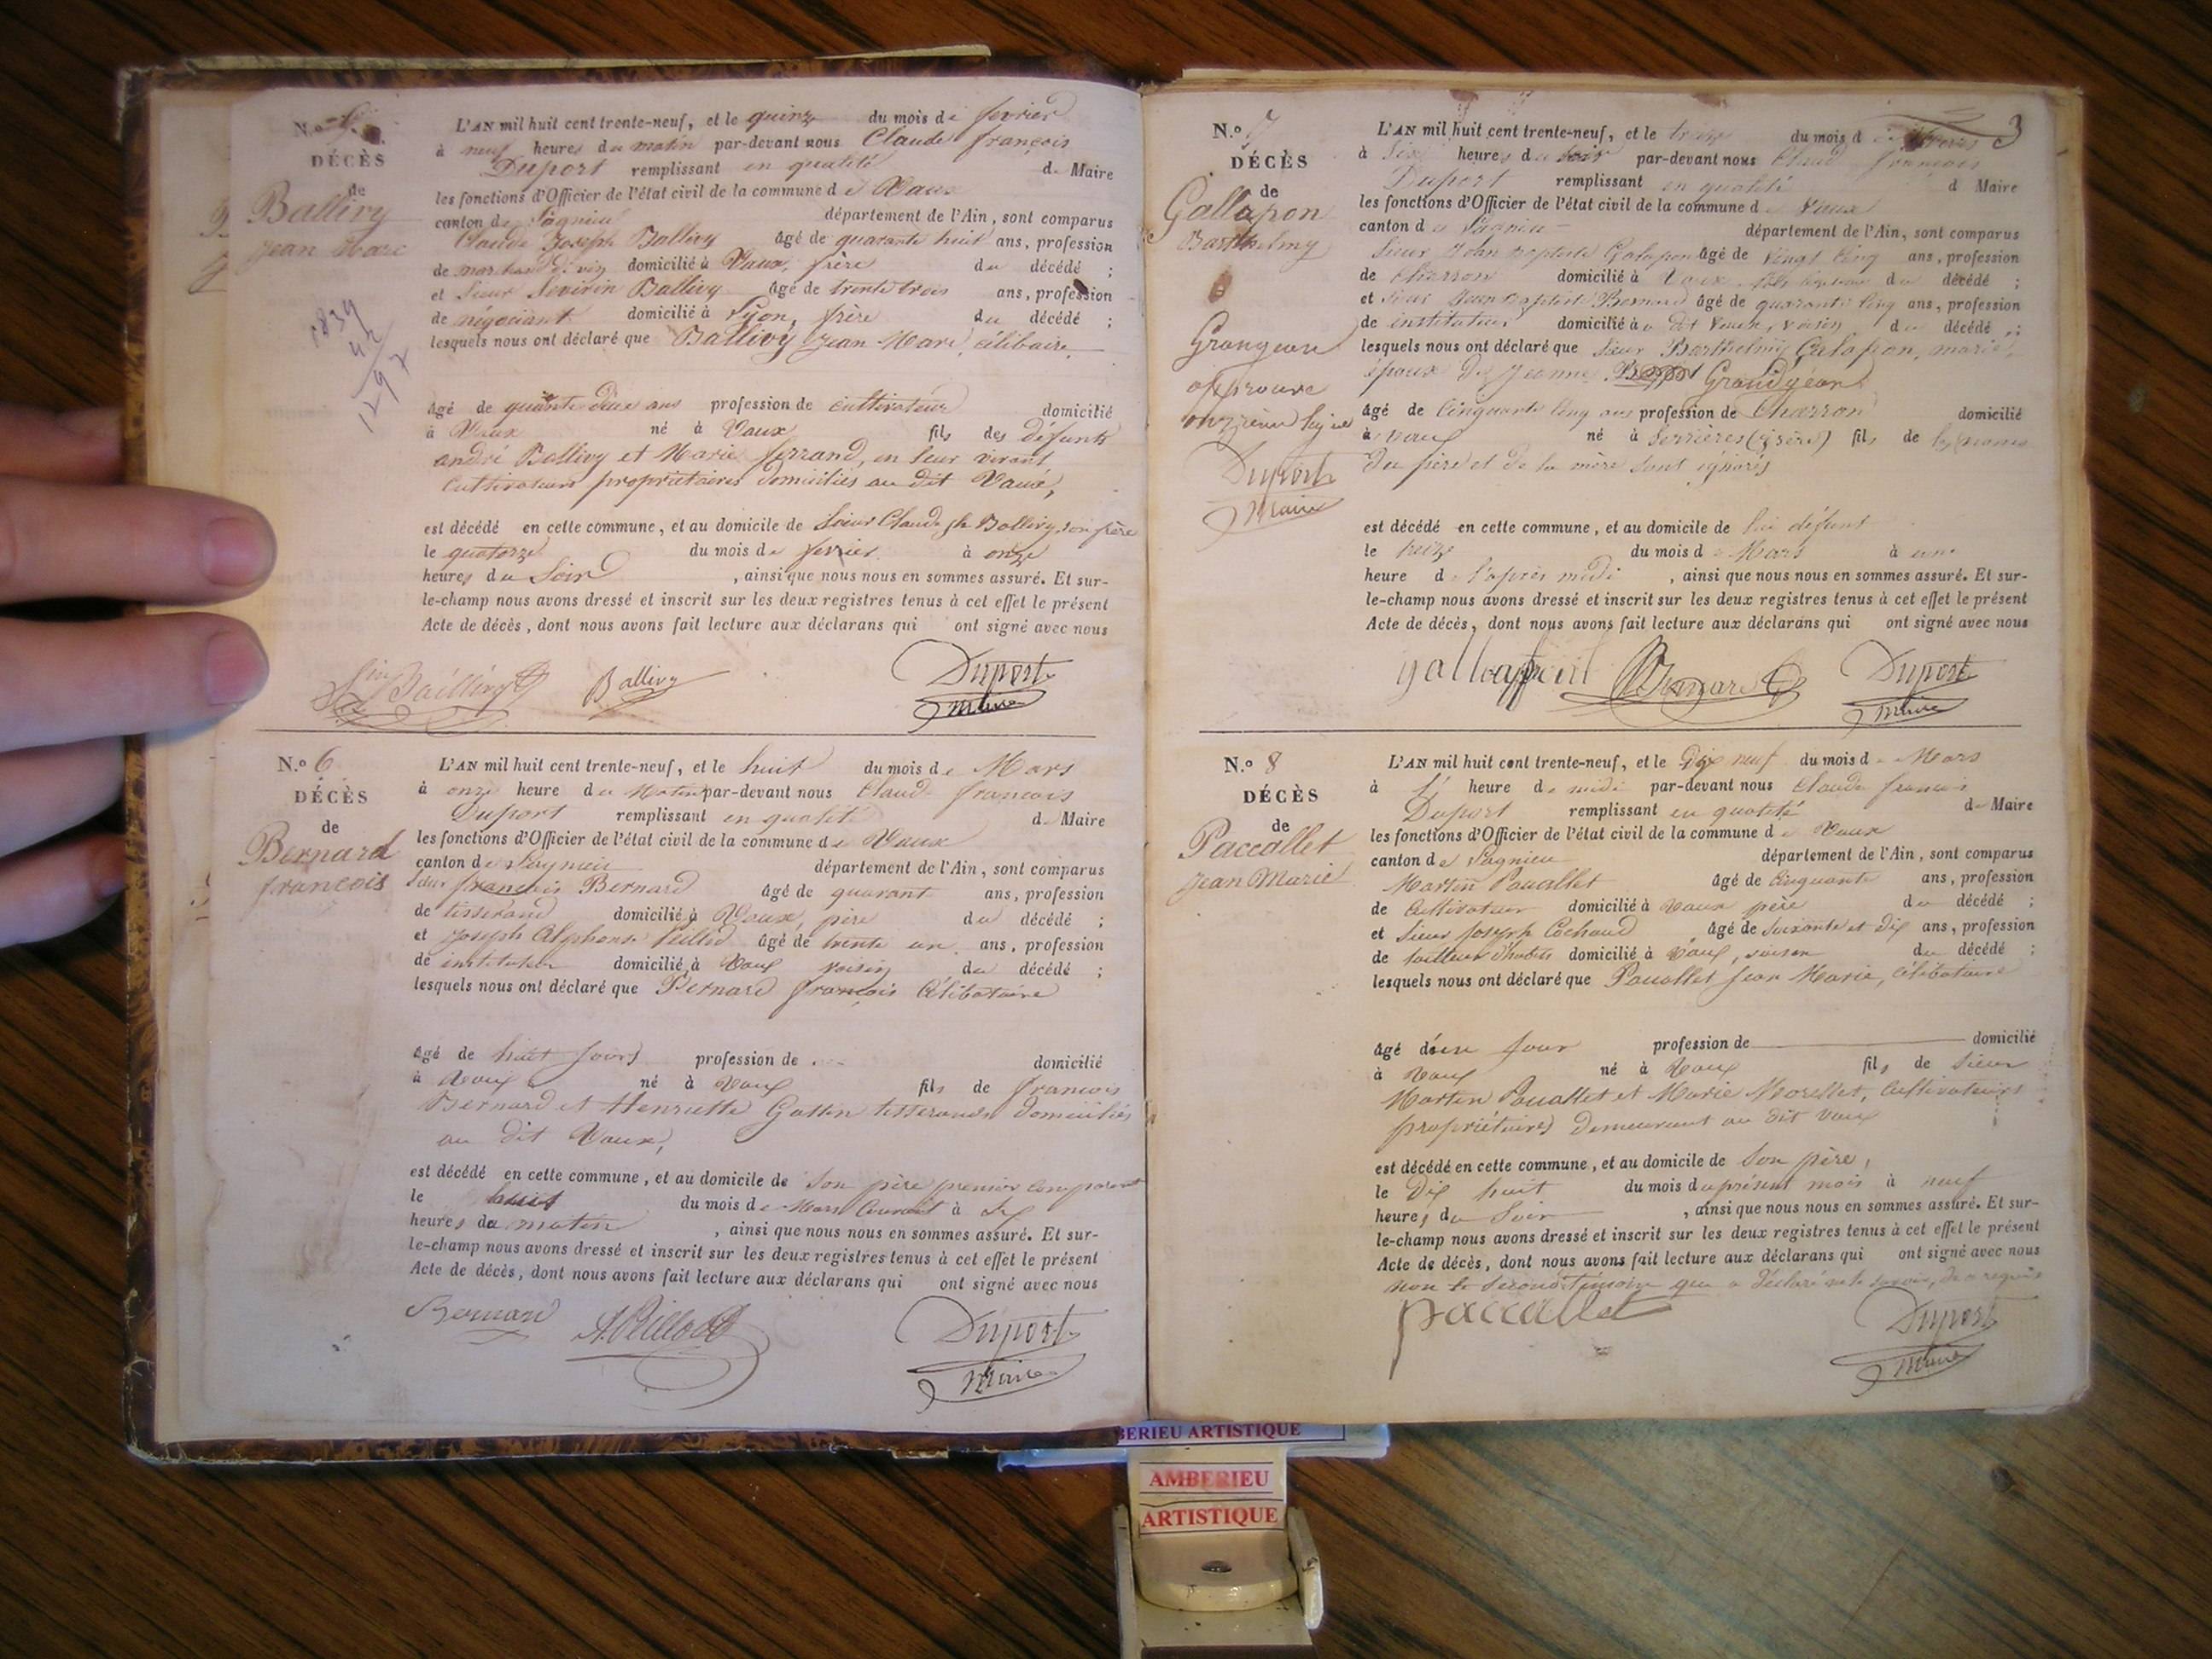 N.o 5.
DÉCÈS
de
Ballivy
Jean Marc
1839
42
1797
L'AN mil huit cent trente-neuf, et le quinze du mois de fevrier
à neuf heures du matin par-devant nous Claude françois
Duport remplissant en qualité de Maire
les fonctions d'Officier de l'état civil de la commune de Vaux
canton de Lagnieu département de l'Ain, sont comparus
Claude Joseph Ballivy âgé de quarante huit ans, profession
de marchand de vin domicilié à Vaux, frère du décédé ;
et Sieur Severin Ballivy âgé de trente trois ans, profession
de négociant domicilié à Lyon, frère du décédé ;
lesquels nous ont déclaré que Ballivy Jean Marc, célibaire
âgé de quarante deux ans profession de cultivateur domicilié
à Vaux né à Vaux fils des défunts
andré Ballivy et Marie ferrand, en leur vivant
cultivateurs propriétaires domiciliés au dit Vaux,
est décédé en cette commune, et au domicile de Sieur Claude Jh Ballivy, son frère
le quatorze du mois de fevrier à onze
heures du Soir , ainsi que nous nous en sommes assuré. Et sur-
le-champ nous avons dressé et inscrit sur les deux registres tenus à cet effet le présent
Acte de décès, dont nous avons fait lecture aux déclarans qui ont signé avec nous
Ballivy Duport
Maire
N.o 6
DÉCÈS
de
Bernard
françois
L'AN mil huit cent trente-neuf, et le huit du mois de Mars
à onze heure du Matin par-devant nous Claude francois
Duport remplissant en qualité de Maire
les fonctions d'Officier de l'état civil de la commune de Vaux
canton de Lagnieu département de l'Ain, sont comparus
Sieur françois Bernard âgé de quarant ans, profession
de tisserand domicilié à Vaux, père du décédé ;
et Joseph Alphonse âgé de trente un ans, profession
de instituteur domicilié à Vaux voisin du décédé ;
lesquels nous ont déclaré que Bernard françois Célibataire
âgé de huit Jours profession de domicilié
à Vaux né à Vaux fils de francois
Bernard et Henriette Gottin tisserands domiciliés
au dit Vaux,
est décédé en cette commune, et au domicile de Son père premier comparant
le huit du mois de Mars Courant à Six
heures du matin , ainsi que nous nous en sommes assuré. Et sur-
le-champ nous avons dressé et inscrit sur les deux registres tenus à cet effet le présent
Acte de décès, dont nous avons fait lecture aux déclarans qui ont signé avec nous
Bernard Duport
Maire
3
N.o 7
DÉCÈS
de
Gallapon
Barthelmy
Grangean
approuve
onzième ligne
Duport
Maire
L'AN mil huit cent trente-neuf, et le treize du mois d
à Six heures du soir par-devant nous Claude francois
Duport remplissant en qualité d Maire
les fonctions d'Officier de l'état civil de la commune de Vaux
canton de Lagnieu département de l'Ain, sont comparus
Sieur Jean Baptiste Galapon âgé de vingt cinq ans, profession
de charron domicilié à Vaux, du décédé ;
et Sieur Jean Baptiste Bernard âgé de quarante cinq ans, profession
de instituteur domicilié à au dit Vaux, voisin du décédé ;
lesquels nous ont déclaré que Sieur Barthelmi Galapon, marié,
époux de Jeanne Grandjéan
âgé de Cinquante cinq ans profession de Charron domicilié
à Vaux né à Serrières (isère) fils de les noms
du père et de la mère sont ignorés
est décédé en cette commune, et au domicile de lui défunt
le treize du mois de Mars à une
heure de l'après midi , ainsi que nous nous en sommes assuré. Et sur-
le-champ nous avons dressé et inscrit sur les deux registres tenus à cet effet le présent
Acte de décès, dont nous avons fait lecture aux déclarans qui ont signé avec nous
Bernard Duport
Maire
N.o 8
DÉCÈS
de
Paccallet
Jean Marie
L'AN mil huit cent trente-neuf, et le Dix neuf du mois de Mars
à heure de midi par-devant nous Claude francois
Duport remplissant en qualité de Maire
les fonctions d'Officier de l'état civil de la commune de Vaux
canton de Lagnieu département de l'Ain, sont comparus
Martin Pacallet âgé de Cinquante ans, profession
de Cultivateur domicilié à Vaux père du décédé ;
et Sieur Joseph Cochaud âgé de Soixante et Dix ans, profession
de tailleur d'habits domicilié à Vaux, voisin du décédé ;
lesquels nous ont déclaré que Pacallet Jean Marie, célibataire
âgé d'un Jour profession de domicilié
à Vaux né à Vaux fils de Sieur
Martin Pacallet et Marie Morellet, Cultivateurs
propriétaires demeurant au dit Vaux
est décédé en cette commune, et au domicile de Son père,
le Dix huit du mois du présent mois à neuf
heures du Soir , ainsi que nous nous en sommes assuré. Et sur-
le-champ nous avons dressé et inscrit sur les deux registres tenus à cet effet le présent
Acte de décès, dont nous avons fait lecture aux déclarans qui ont signé avec nous
non le Second témoin qui a déclaré ne le savoir, de ce requis
Paccallet Duport
Maire
BERIEU ARTISTIQUE
AMBERIEU
ARTISTIQUE